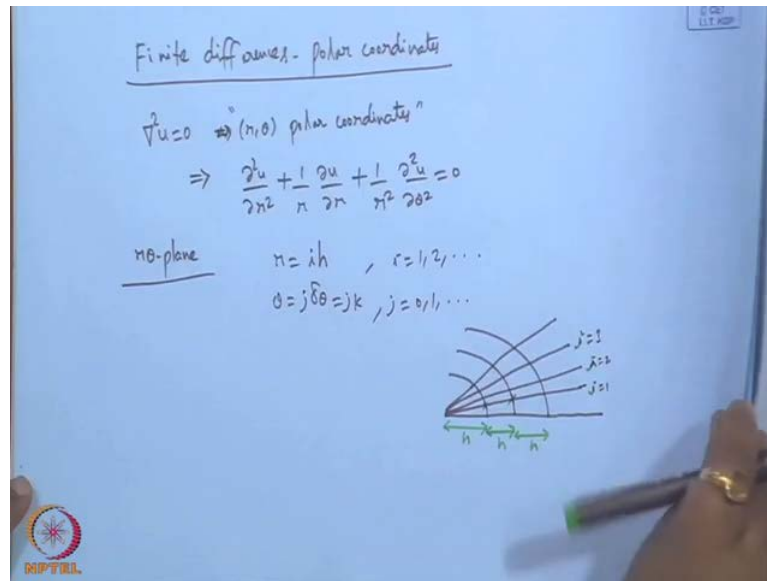 Finite differences - polar coordinates
∇²u=0 ⇒ "(r,θ) polar coordinates"
⇒ ∂²u/∂r² + 1/r ∂u/∂r + 1/r² ∂²u/∂θ² = 0
rθ-plane
r = ih , i = 1, 2, ...
θ = jδθ = jk , j = 0, 1, ...
j=3
j=2
j=1
h h h
NPTEL